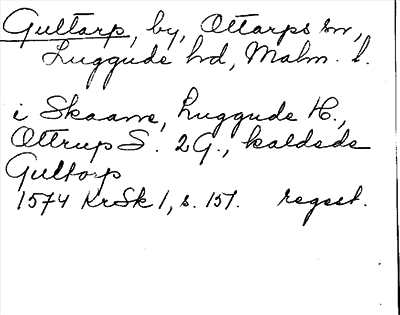 Gultarp, by, Ottarps sn,
Luggude hd, Malm. l.
i Skaane, Luggude H.,
Ottrup S. 2 G., kaldede
Gultorp
1574 KrSk 1, s. 151. regest.